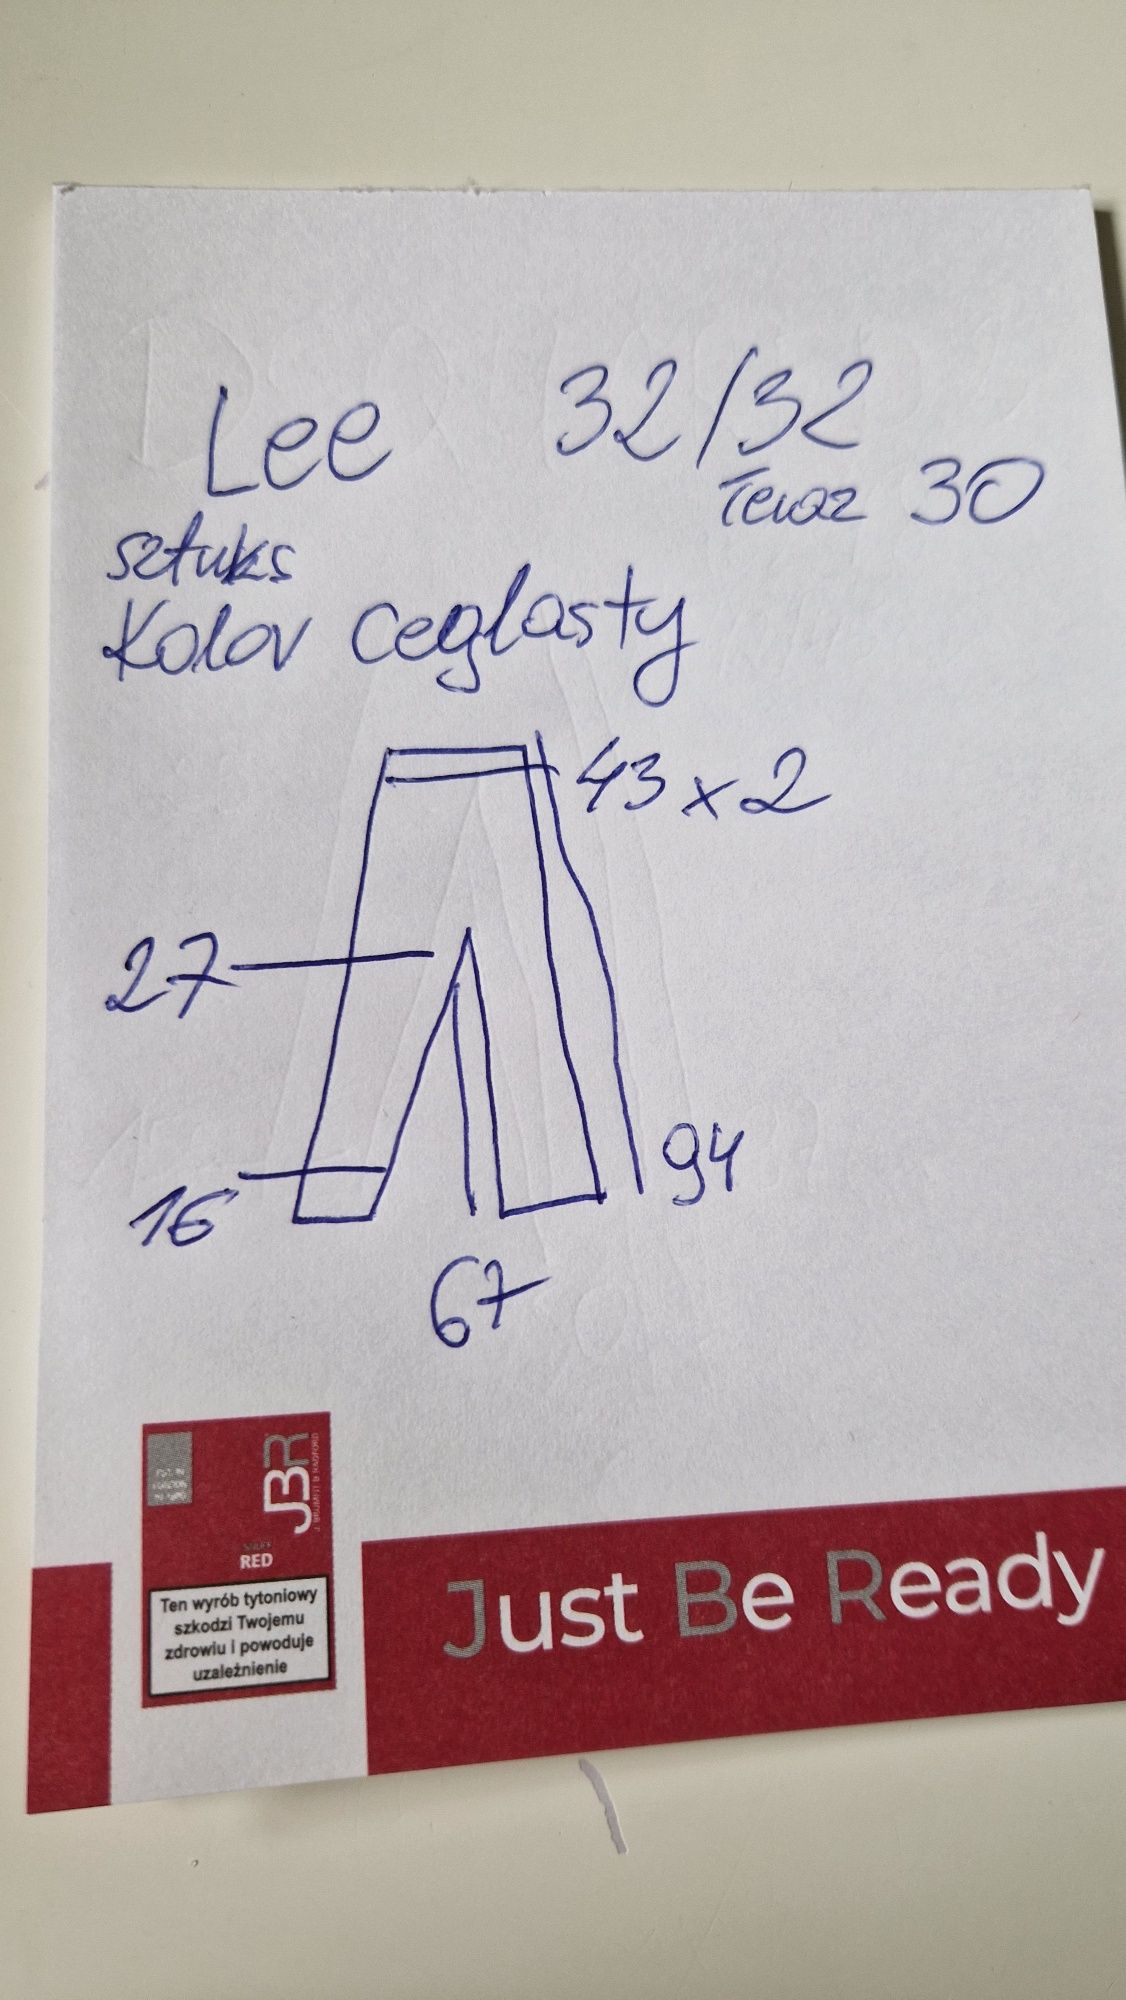 Lee 32/32
Teraz 30
sztuks
Kolor ceglasty
43 x 2
27
94
16
67
JBR
RED
Ten wyrób tytoniowy
szkodzi Twojemu
zdrowiu i powoduje
uzależnienie
Just Be Ready